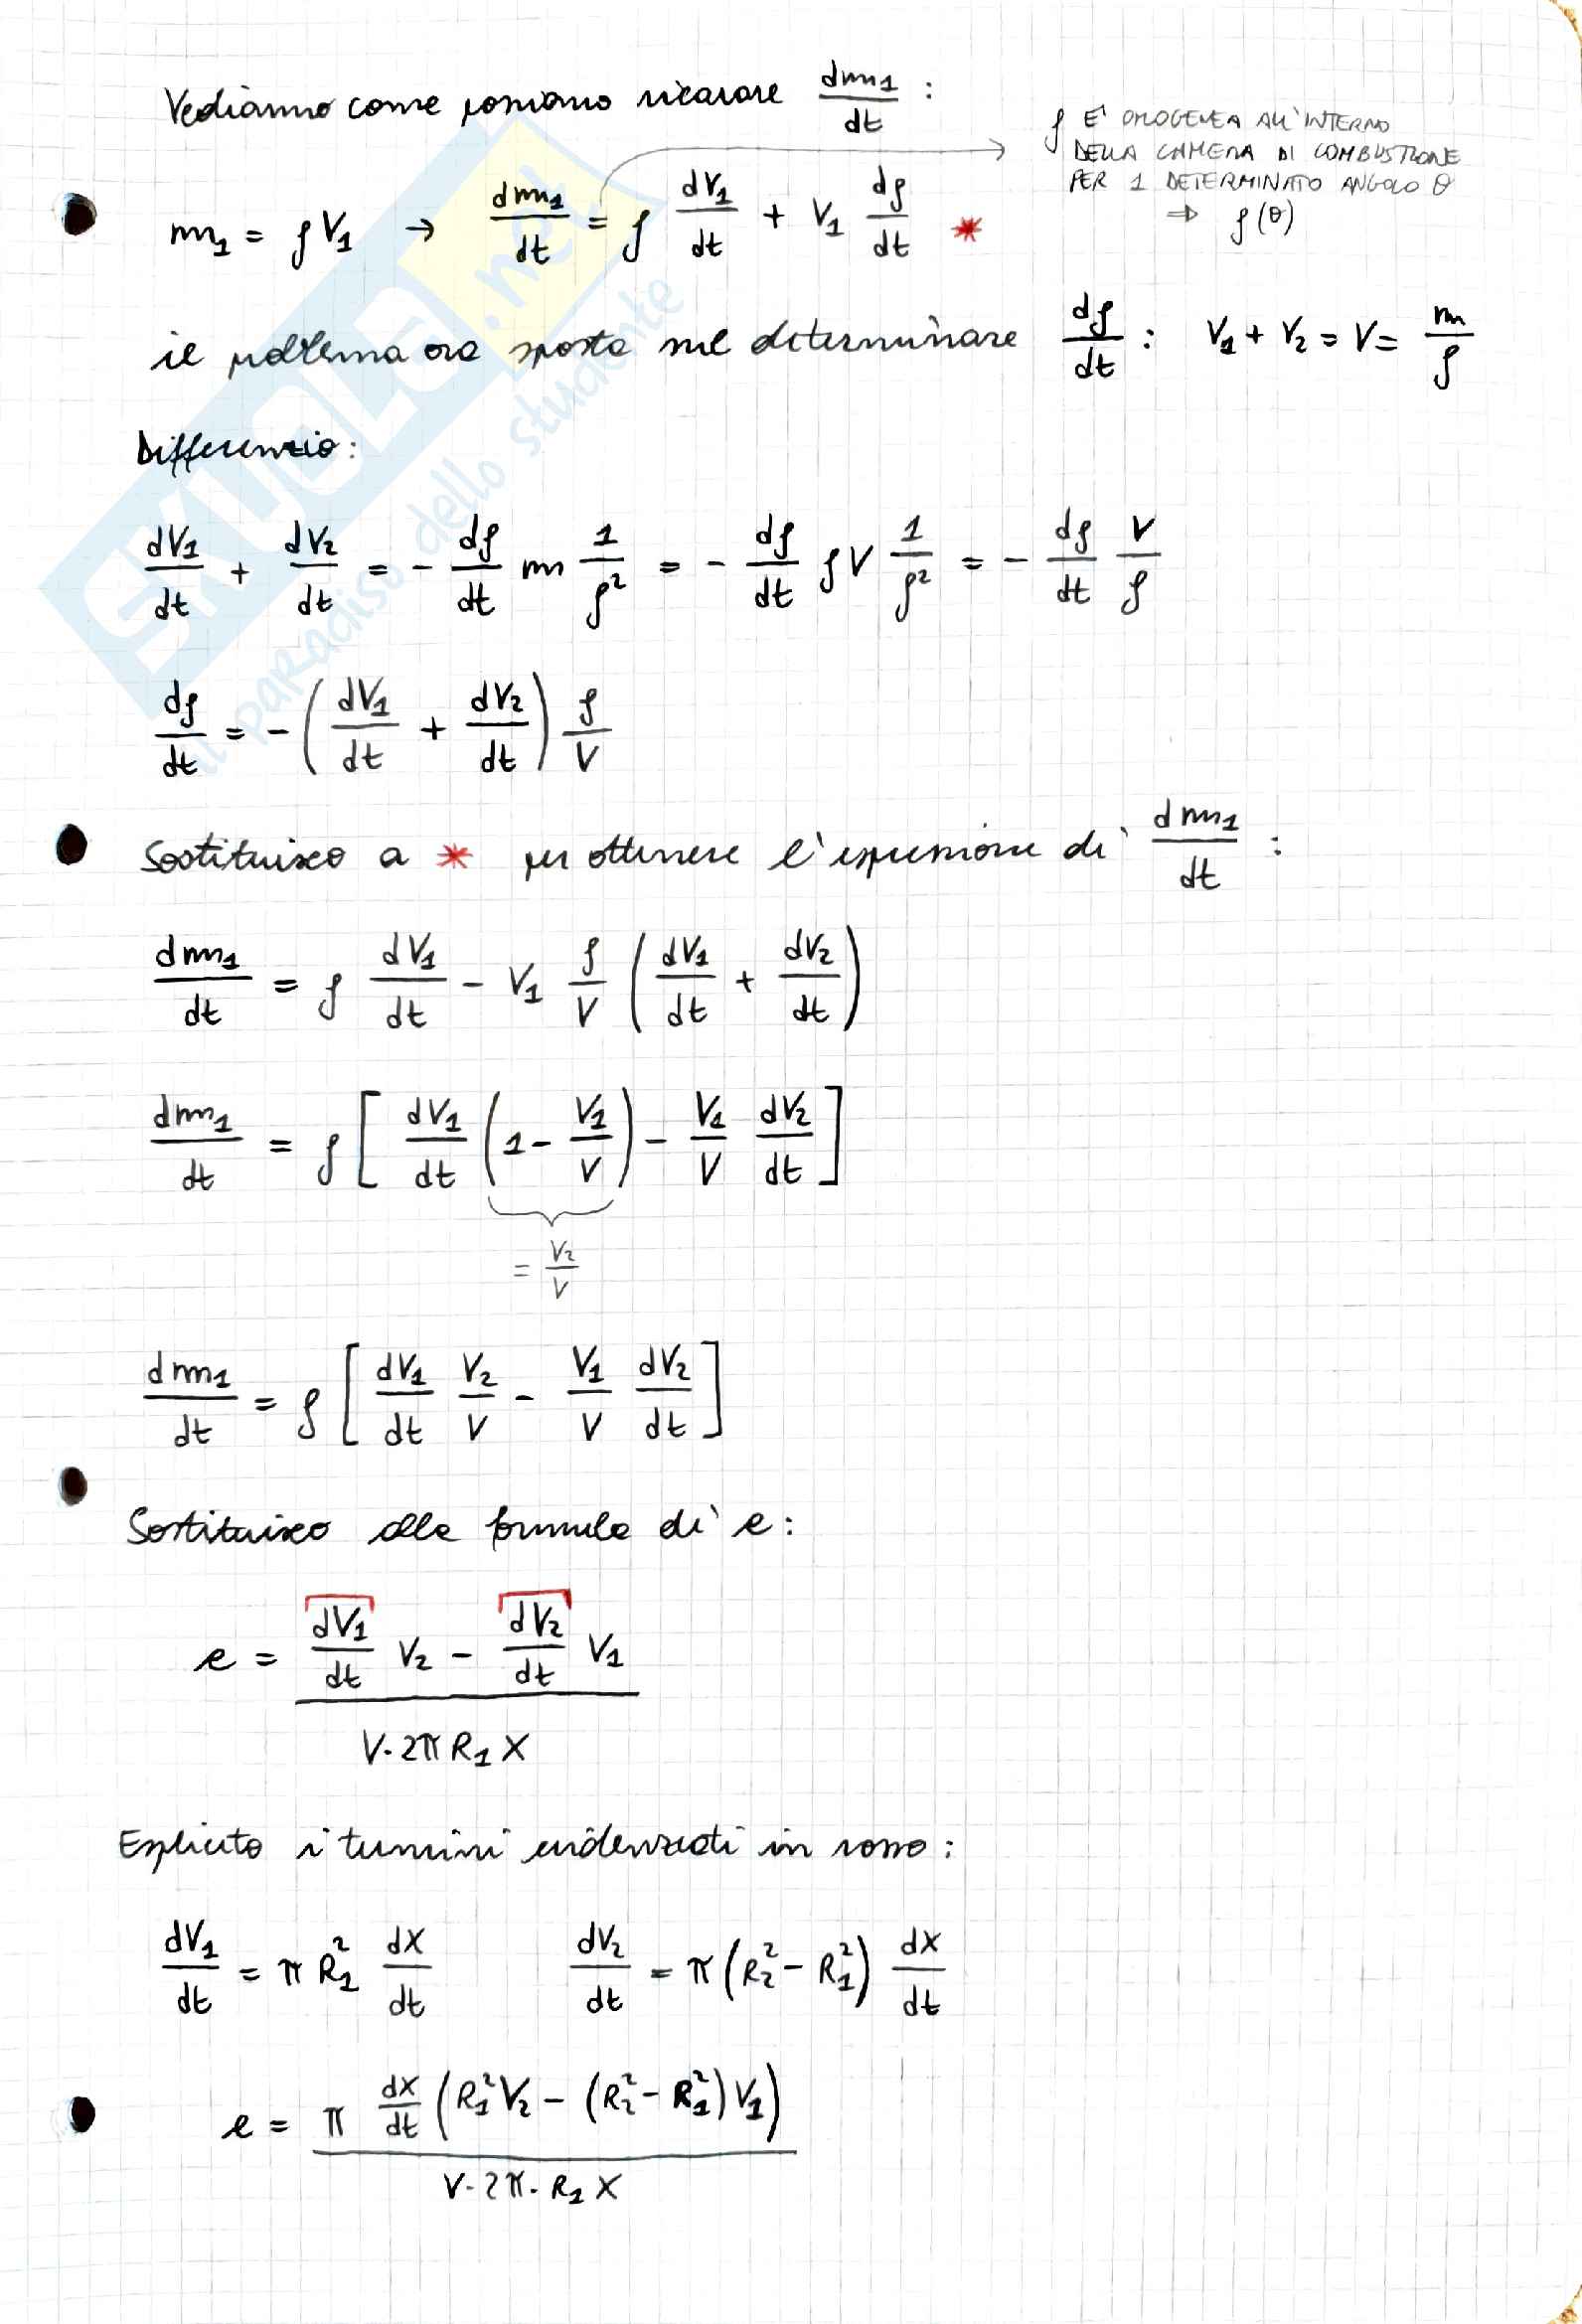 Vediamo come possiamo ricavare dm₁/dt :
ρ E' OMOGENEA ALL'INTERNO
DELLA CAMERA DI COMBUSTIONE
PER 1 DETERMINATO ANGOLO θ
⇒ ρ(θ)
m₁ = ρV₁ → dm₁/dt = ρ dV₁/dt + V₁ dρ/dt *
il problema ora sposta nel determinare dρ/dt : V₁ + V₂ = V = m/ρ
Differenzio:
dV₁/dt + dV₂/dt = - dρ/dt m 1/ρ² = - dρ/dt ρV 1/ρ² = - dρ/dt V/ρ
dρ/dt = - (dV₁/dt + dV₂/dt) ρ/V
Sostituisco a * per ottenere l'espressione di dm₁/dt :
dm₁/dt = ρ dV₁/dt - V₁ ρ/V (dV₁/dt + dV₂/dt)
dm₁/dt = ρ [ dV₁/dt (1 - V₁/V) - V₁/V dV₂/dt ]
= V₂/V
dm₁/dt = ρ [ dV₁/dt V₂/V - V₁/V dV₂/dt ]
Sostituisco alla formula di e:
e = (dV₁/dt V₂ - dV₂/dt V₁) / (V·2π R₁ X)
Esplicito i termini evidenziati in rosso:
dV₁/dt = π R₁² dX/dt dV₂/dt = π (R₂² - R₁²) dX/dt
e = π dX/dt (R₁² V₂ - (R₂² - R₁²) V₁) / (V·2π·R₁ X)
SKUOLA.net
il paradiso dello studente